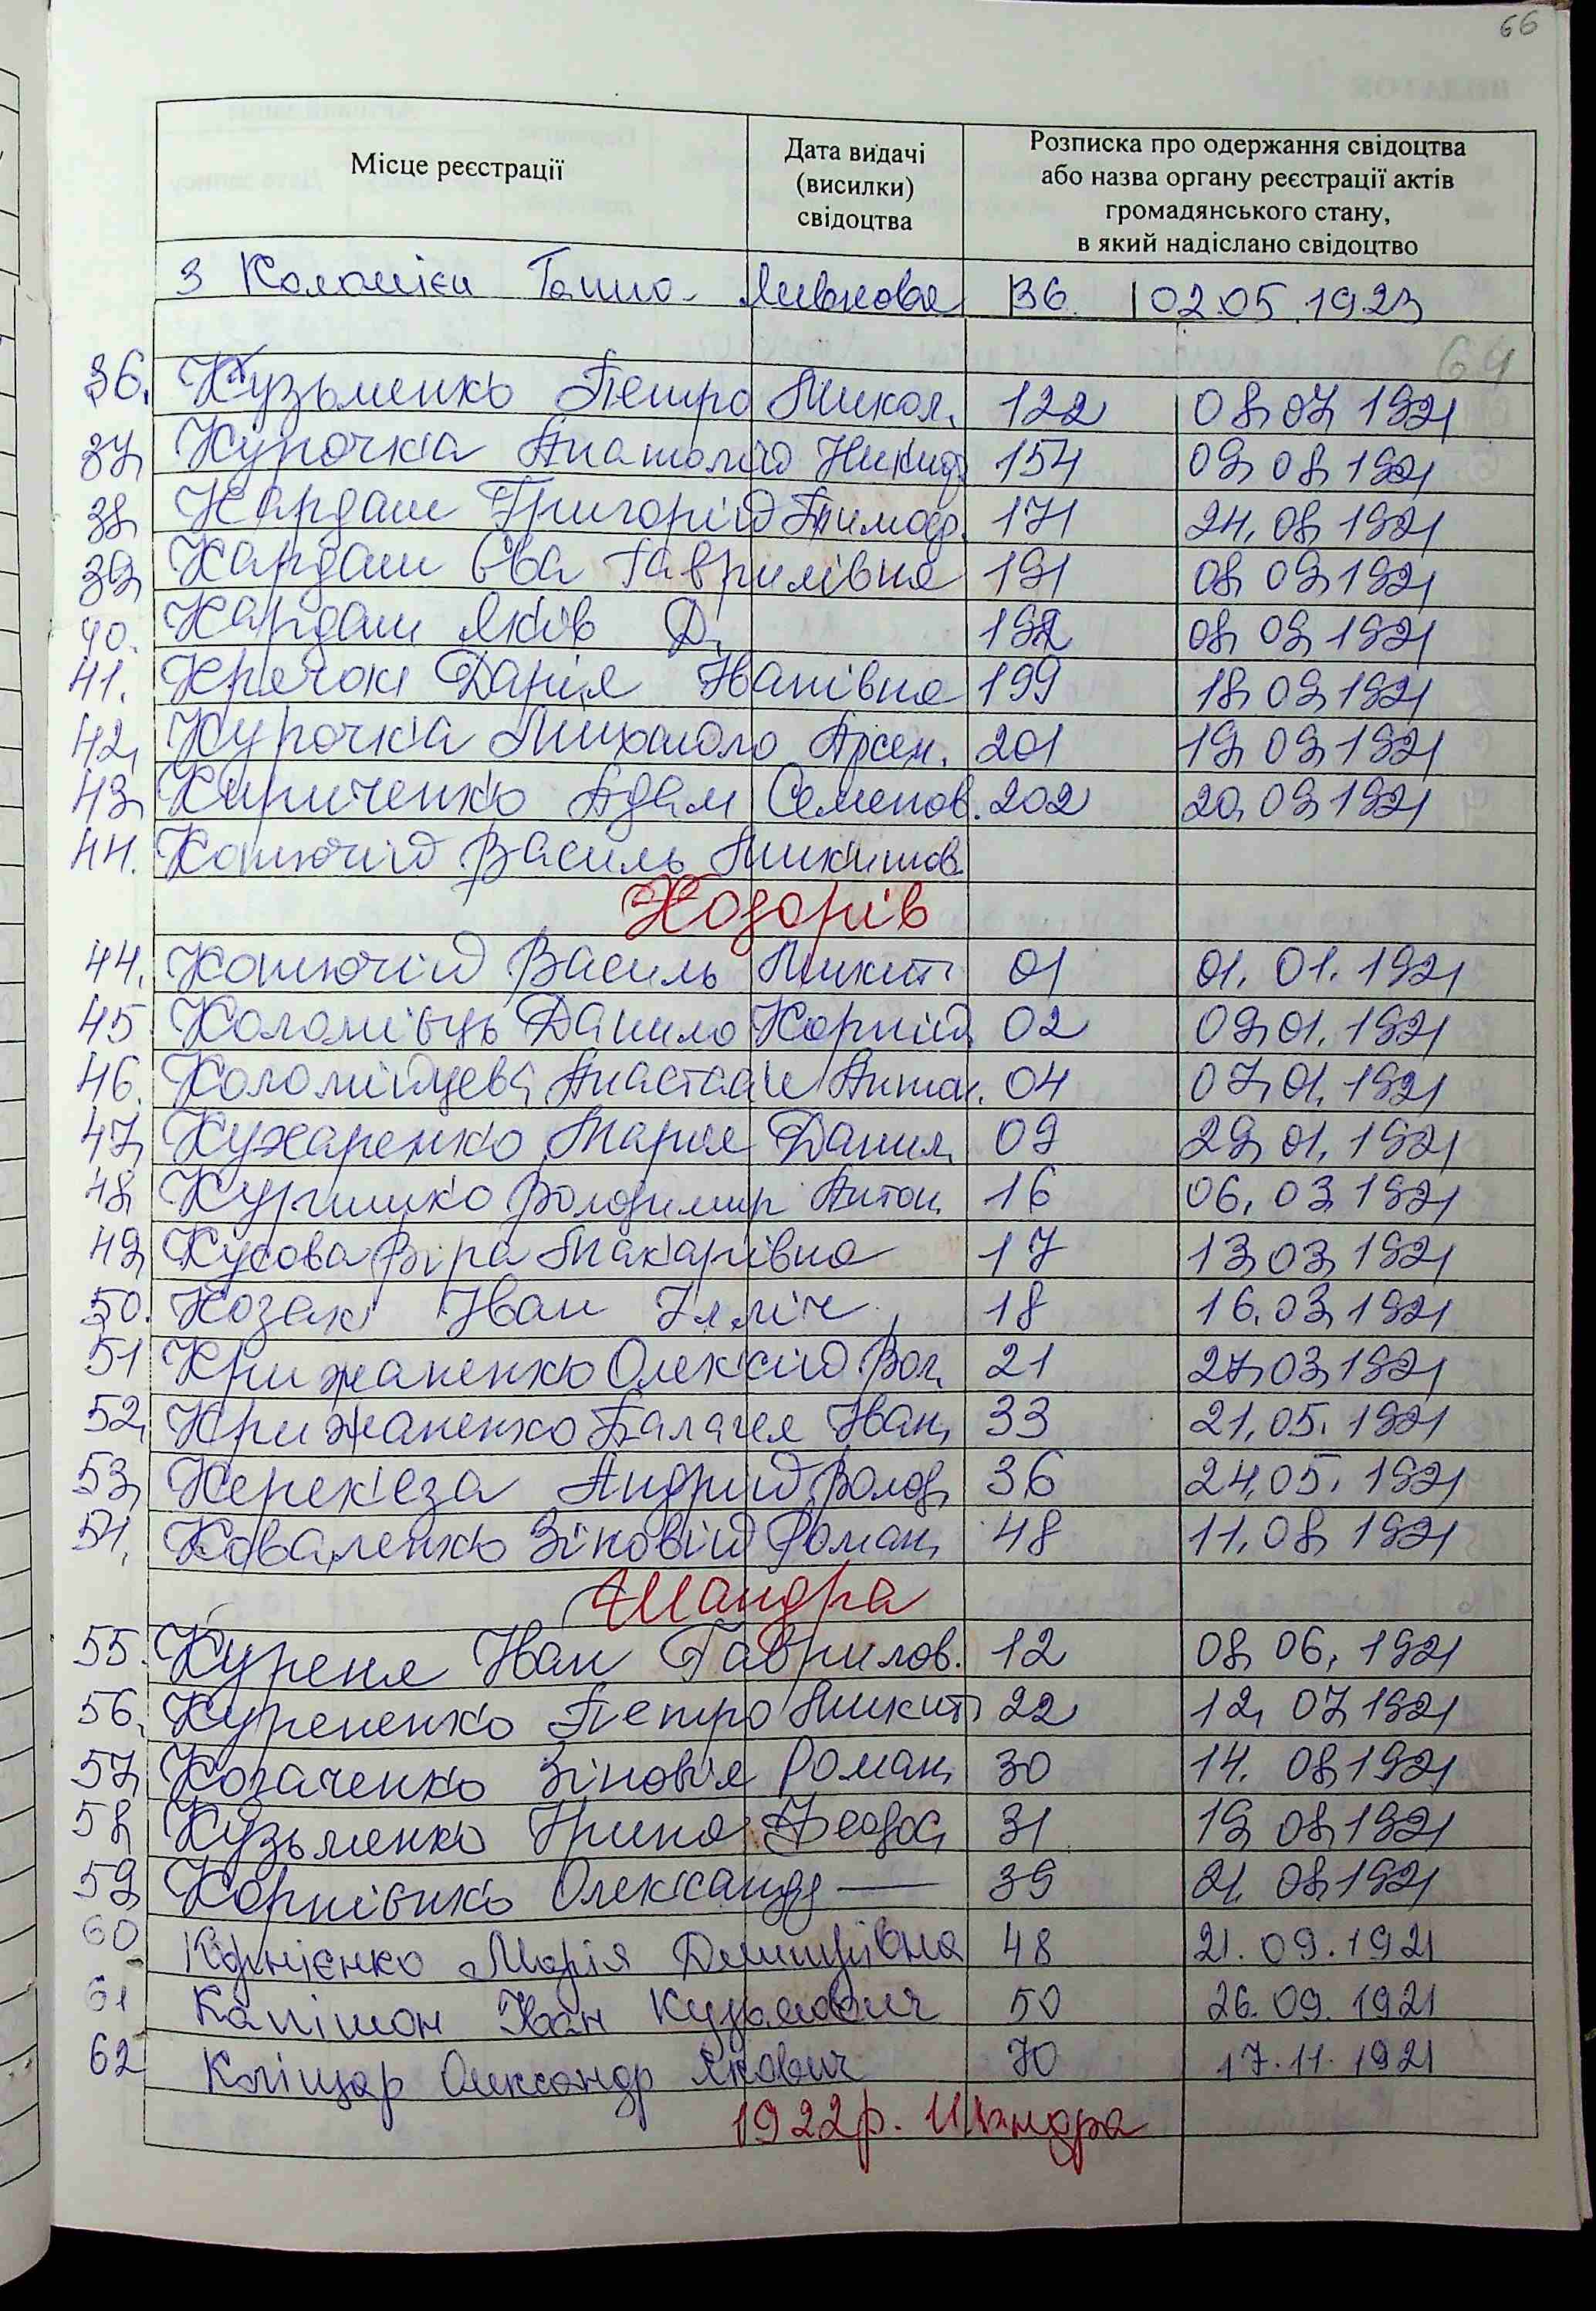 66
Місце реєстрації
Дата видачі
(висилки)
свідоцтва
Розписка про одержання свідоцтва
або назва органу реєстрації актів
громадянського стану,
в який надіслано свідоцтво
3 Коломієц Ганна 36. 02.05.1923
64
36. Кузьменко Петро Микол. 122 08.07.1921
37. Курочка Анатолій Никид. 154 09.08.1921
38. Кардаш Григорій Тимоф. 171 24.08.1921
39. Кардаш Єва Гаврилівна 191 08.09.1921
40. Кардаш Яків Д. 192 08.09.1921
41. Кречок Дарія Іванівна 199 18.09.1921
42. Курочка Михайло Арсен. 201 19.09.1921
43. Кириченко Адам Семенов. 202 20.09.1921
44. Конючій Василь Микитов.
Ходорів
44. Конючій Василь Микит 01 01.01.1921
45 Коломієць Данило Корній 02 09.01.1921
46. Коломійцева Анастасія Антон. 04 07.01.1921
47. Кухаренко Марія Данил. 09 29.01.1921
48. Володимир Антон. 16 06.03.1921
49. Кусова Віра Макарівна 17 13.03.1921
50. Козак Іван Ілліч 18 16.03.1921
51 Крижаненко Олексій Вол. 21 27.03.1921
52. Крижаненко Палагея Іван. 33 21.05.1921
53. Керекеза Андрій Волод. 36 24.05.1921
54. Коваленко Зіновій Роман. 48 11.08.1921
Шандра
55. Куреня Іван Гаврилов. 12 08.06.1921
56. Курененко Петро Микит 22 12.07.1921
57. Когаченко Зіновія Роман. 30 14.08.1921
58. Кузьменко Ірина Феодос. 31 19.08.1921
59. Корнієнко Олександр — 39 21.08.1921
60. Корнієнко Марія Дмитрівна 48 21.09.1921
61 Капітон Іван Кузьмович 50 26.09.1921
62 Кліщар Олександр Якович 70 17.11.1921
1922р. Шандра